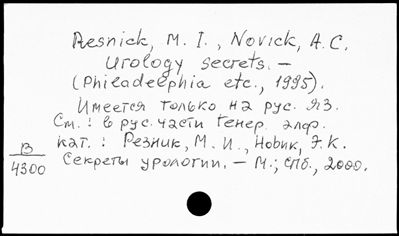 Resnick, M. I., Novick, A. C.
Urology secrets. –
(Philadelphia etc., 1995).
Имеется только на рус. яз.
См.: в рус. части генер. алф.
кат.: Резник, М. И., Новик, Э. К.
Секреты урологии. – М.; СПб., 2000.
В
4300